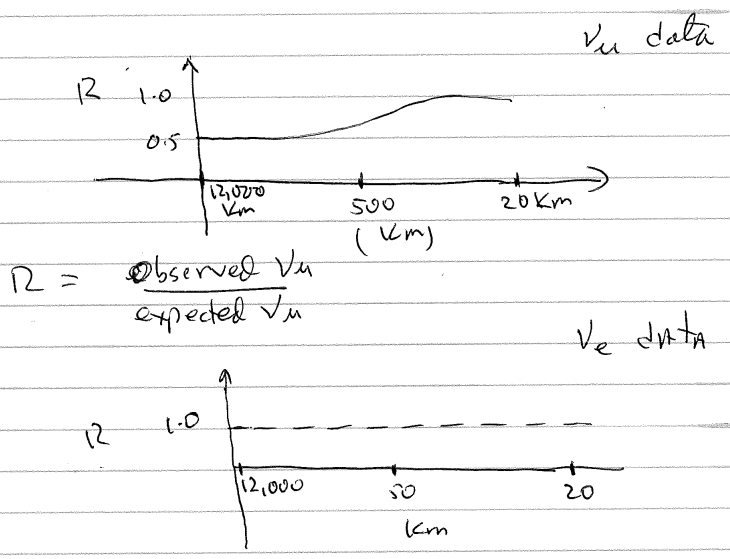 νμ data
R 1.0
0.5
12,000 500 20 Km
Km
(Km)
R = observed νμ
expected νμ
νe dAtA
R 1.0
12,000 50 20
Km